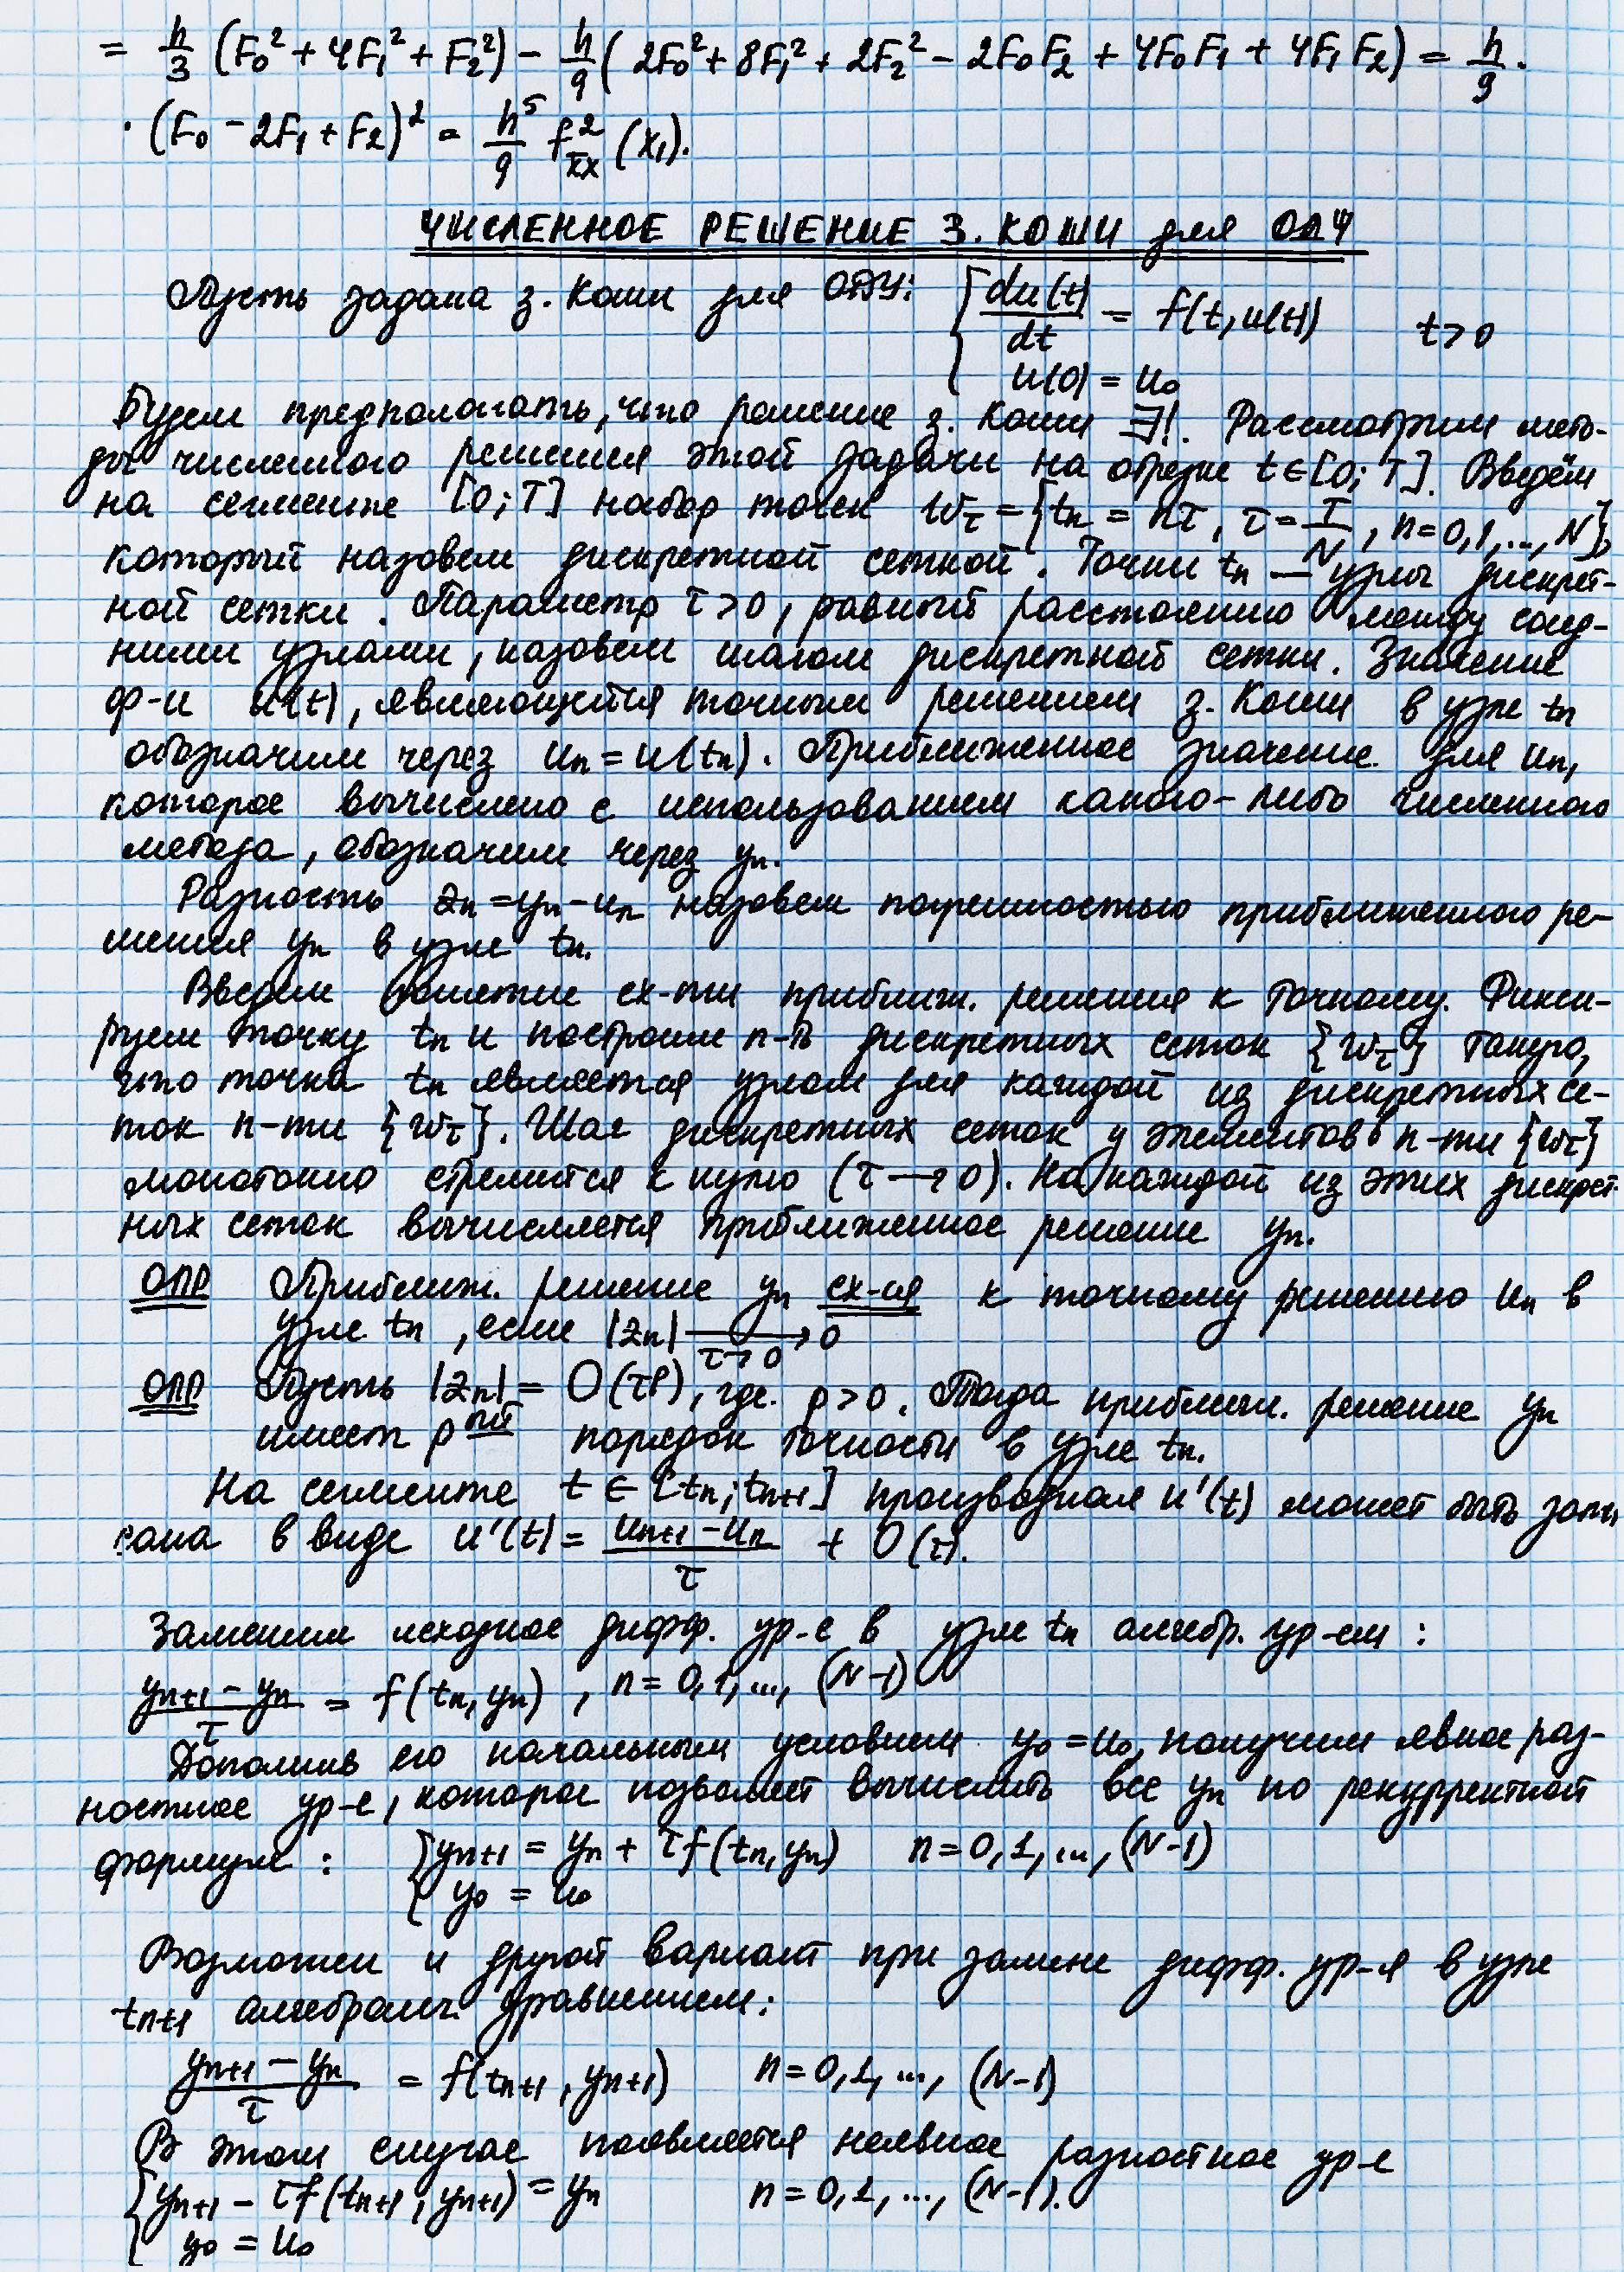 = h/3 (F₀² + 4F₁² + F₂²) − h/9 (2F₀² + 8F₁² + 2F₂² − 2F₀F₂ + 4F₀F₁ + 4F₁F₂) = h/9 ·
· (F₀ − 2F₁ + F₂)² = h⁵/9 f²_x̄x (x₁).
ЧИСЛЕННОЕ РЕШЕНИЕ З. КОШИ для ОДУ
Пусть задана з. Коши для ОДУ: { du(t)/dt = f(t, u(t)) t > 0
u(0) = u₀
Будем предполагать, что решение з. Коши ∃!. Рассмотрим мето-
ды численного решения этой задачи на отрезке t ∈ [0; T]. Введём
на сегменте [0; T] набор точек w_τ = {tₙ = nτ, τ = T/N, n = 0, 1, ..., N},
который назовем дискретной сеткой. Точки tₙ — узлы дискрет-
ной сетки. Параметр τ > 0, равный расстоянию между сосед-
ними узлами, назовем шагом дискретной сетки. Значение
ф-и u(t), являющейся точным решением з. Коши в узле tₙ
обозначим через uₙ = u(tₙ). Приближенное значение для uₙ,
которое вычислено с использованием какого-либо численного
метода, обозначим через yₙ.
Разность zₙ = yₙ − uₙ назовем погрешностью приближенного ре-
шения yₙ в узле tₙ.
Введем понятие сх-ти приближ. решения к точному. Фикси-
руем точку tₙ и построим п-ть дискретных сеток {w_τ} такую,
что точка tₙ является узлом для каждой из дискретных се-
ток п-ти {w_τ}. Шаг дискретных сеток у элементов п-ти {w_τ}
монотонно стремится к нулю (τ → 0). На каждой из этих дискрет-
ных сеток вычисляется приближенное решение yₙ.
ОПР Приближ. решение yₙ сх-ся к точному решению uₙ в
узле tₙ, если |zₙ| →_{τ→0} 0
ОПР Пусть |zₙ| = O(τᵖ), где p > 0. Тогда приближ. решение yₙ
имеет p^ый порядок точности в узле tₙ.
На сегменте t ∈ [tₙ; tₙ₊₁] производная u'(t) может быть запи
сана в виде u'(t) = (uₙ₊₁ − uₙ)/τ + O(τ).
Заменим исходное дифф. ур-е в узле tₙ алгебр. ур-ем:
(yₙ₊₁ − yₙ)/τ = f(tₙ, yₙ), n = 0, 1, ..., (N−1)
Дополнив его начальным условием y₀ = u₀, получим явное раз-
ностное ур-е, которое позволяет вычислить все yₙ по рекуррентной
формуле: { yₙ₊₁ = yₙ + τf(tₙ, yₙ) n = 0, 1, ..., (N−1)
y₀ = u₀
Возможен и другой вариант при замене дифф. ур-я в узле
tₙ₊₁ алгебраич. уравнением:
(yₙ₊₁ − yₙ)/τ = f(tₙ₊₁, yₙ₊₁) n = 0, 1, ..., (N−1)
В этом случае появляется неявное разностное ур-е
{ yₙ₊₁ − τf(tₙ₊₁, yₙ₊₁) = yₙ n = 0, 1, ..., (N−1).
y₀ = u₀